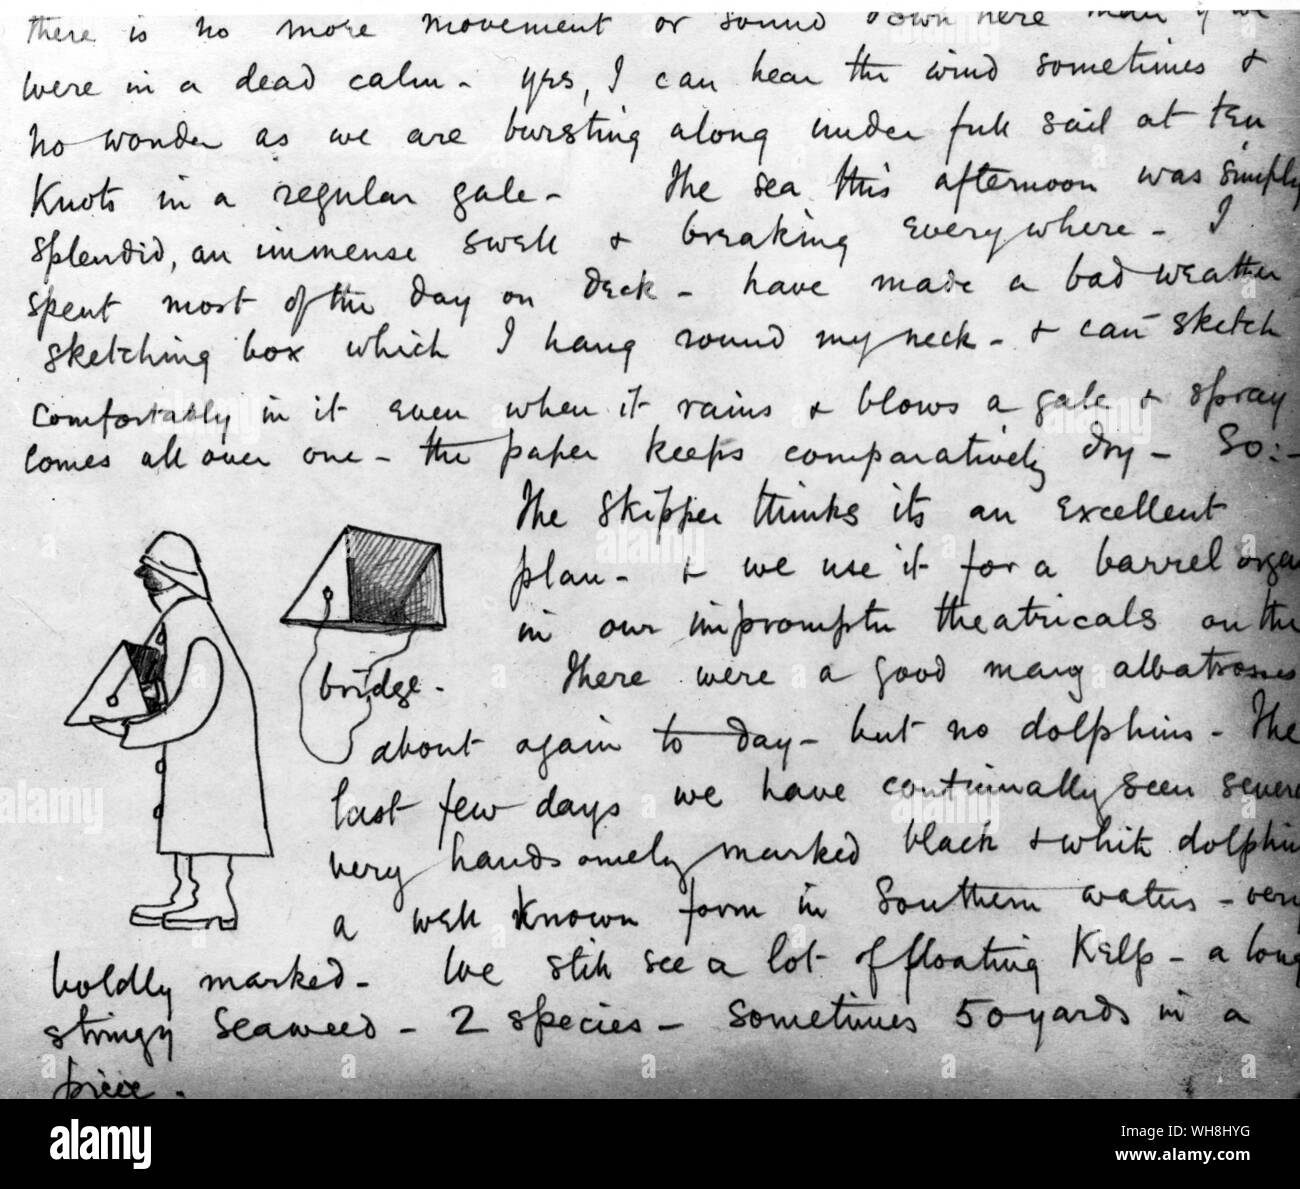 there is no more movement or sound down here than if we
were in a dead calm - yes, I can hear the wind sometimes &
no wonder as we are bursting along under full sail at ten
Knots in a regular gale - The sea this afternoon was simply
splendid, an immense swell & breaking everywhere - I
spent most of the day on deck - have made a bad weather
sketching box which I hang round my neck - & can sketch
comfortably in it even when it rains & blows a gale & spray
comes all over one - the paper keeps comparatively dry - So:-
The Skipper thinks its an excellent
plan - & we use it for a barrel organ
in our impromptu theatricals on the
bridge. There were a good many albatrosses
about again to-day - but no dolphins - The
last few days we have continually seen several
very handsomely marked black & white dolphin
a well known form in Southern waters - very
boldly marked - We still see a lot of floating Kelp - a long
stringy seaweed - 2 species - sometimes 50 yards in a
piece.
alamy
Image ID: WH8HYG
www.alamy.com